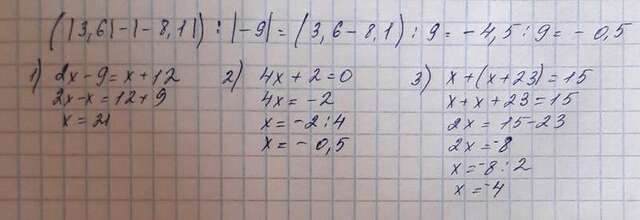 (|3,6|-|-8,1|) : |-9| = (3,6-8,1) : 9 = -4,5 : 9 = -0,5
1) 2x-9=x+12
2x-x=12+9
x=21
2) 4x+2=0
4x=-2
x=-2:4
x=-0,5
3) x+(x+23)=15
x+x+23=15
2x=15-23
2x=-8
x=-8:2
x=-4